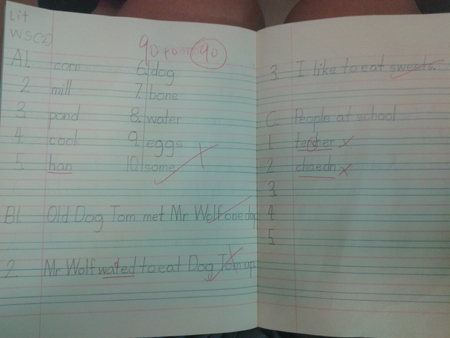 Lit
WSC2)
90 points 90
A1. corn 6. dog
2 mill 7. bone
3. pond 8. water
4. cook 9. eggs
5. han 10. some
B1. Old Dog Tom met Mr Wolf one day
2. Mr Wolf wated to eat Dog Tom up.
3. I like to eat sweets.
C. People at school
1
2
3
4
5